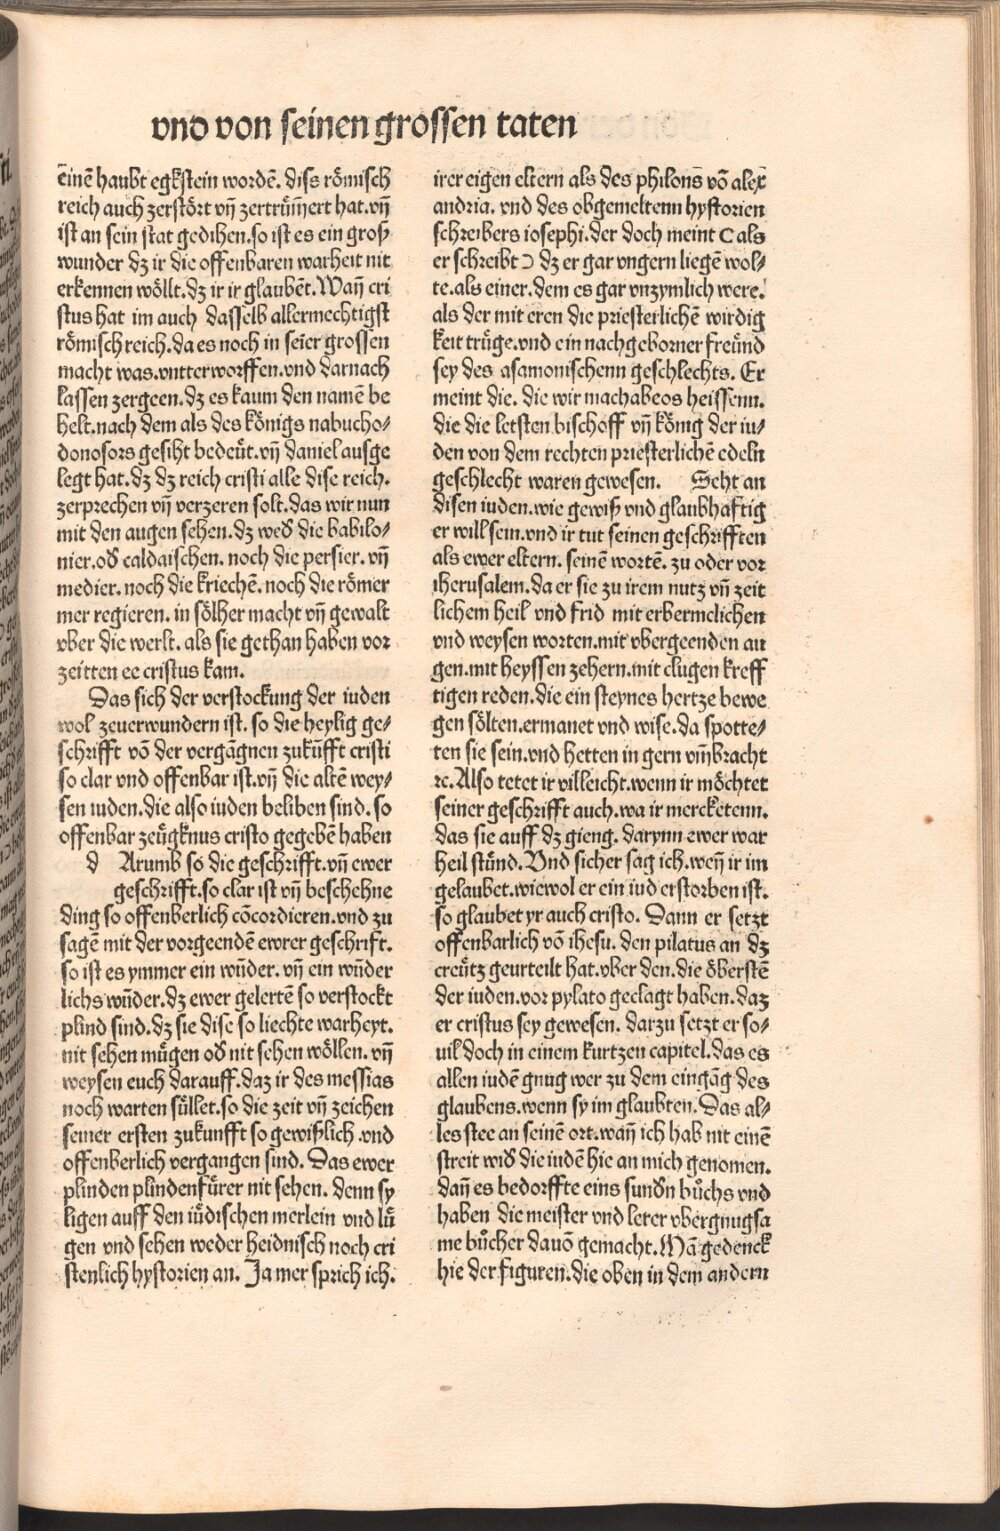 vnd von seinen grossen taten
einē haubt egkstein wordē. diss römisch
reich auch zerstört vn̄ zertrüm̄ert hat. vn̄
ist an sein stat gedihen. so ist es ein groß
wunder dz ir die offenbaren warheit nit
erkennen wöllt. dz ir ir glaubēt. Wan̄ cri
stus hat im auch dasselb allermechtigst
römisch reich. da es noch in seīer grossen
macht was. vntterworffen. vnd darnach
lassen zergeen. dz es kaum den namē be
helt. nach dem als des königs nabucho⸗
donosors gesiht bedeüt. vn̄ daniel ausge
legt hat. dz dz reich cristi alle dise reich.
zerprechen vn̄ verzeren solt. das wir nun
mit den augen sehen. dz wed̄ die babilo⸗
nier. od̄ caldaischen. noch die persier. vn̄
medier. noch die kriechē. noch die römer
mer regieren. in sölher macht vn̄ gewalt
vber die werlt. als sie gethan haben vor
zeitten ee cristus kam.
Das sich der verstockung der iuden
wol zeuerwundern ist. so die heylig ge⸗
schrifft vō der vergāgnen zukūfft cristi
so clar vnd offenbar ist. vn̄ die altē wey⸗
sen iuden. die also iuden beliben sind. so
offenbar zeügknus cristo gegebē haben
d Arumb so die geschrifft. vn̄ ewer
geschrifft. so clar ist vn̄ beschehne
ding so offenberlich cōcordieren. vnd zu
sagē mit der vorgeendē ewrer geschrift.
so ist es ymmer ein wūder. vn̄ ein wūder
lichs wūder. dz ewer gelertē so verstockt
plind sind. dz sie dise so liechte warheyt.
nit sehen mügen od̄ nit sehen wöllen. vn̄
weysen euch darauff. daz ir des messias
noch warten süllet. so die zeit vn̄ zeichen
seiner ersten zukunfft so gewißlich vnd
offenberlich vergangen sind. Das ewer
plinden plindenfürer nit sehen. denn sy
ligen auff den iüdischen merlein vnd lü
gen vnd sehen weder heidnisch noch cri
stenlich hystorien an. Ja mer sprich ich.
irer eigen eltern als des philons vō alex
andria. vnd des obgemeltenn hystorien
schreibers iosephi. der doch meint (als
er schreibt) dz er gar vngern liegē wol⸗
te. als einer. dem es gar vnzymlich were.
als der mit eren die priesterlichē wirdig
keit trüge. vnd ein nachgeborner freünd
sey des asamonischenn geschlechts. Er
meint die. die wir machabeos heissenn.
die die letsten bischoff vn̄ könig der iu⸗
den von dem rechten priesterlichē edeln
geschlecht waren gewesen. Seht an
disen iuden. wie gewiß vnd glaubhaftig
er will sein. vnd ir tut seinen geschrifften
als ewer eltern. seinē wortē. zu oder vor
iherusalem. da er sie zu irem nutz vn̄ zeit
lichem heil vnd frid mit erbermclichen
vnd weysen worten. mit vbergeenden au
gen. mit heyssen zehern. mit clugen kreff
tigen reden. die ein steynes hertze bewe
gen sölten. ermanet vnd wise. da spotte⸗
ten sie sein. vnd hetten in gern vm̄bracht
⁊c. Also tetet ir villeicht. wenn ir möchtet
seiner geschrifft auch. wa ir mercketenn.
das sie auff dz gieng. darynn ewer war
heil stünd. Vnd sicher sag ich. wen̄ ir im
gelaubet. wiewol er ein iud erstorben ist.
so glaubet yr auch cristo. Dann er setzt
offenbarlich vō ihesu. den pilatus an dz
creütz geurteilt hat. vber den. die öberstē
der iuden. vor pylato geclagt haben. daz
er cristus sey gewesen. darzu setzt er so⸗
uil doch in einem kurtzen capitel. das es
allen iudē gnug wer zu dem eingāg des
glaubens. wenn sy im glaubten. Das al⸗
les stee an seinē ort. wan̄ ich hab nit einē
streit wid̄ die iudē hie an mich genomen.
dan̄ es bedorffte eins sund̄n bůchs vnd
haben die meister vnd lerer vbergnugsa
me bůcher dauō gemacht. Mā gedenck
hie der figuren. die oben in dem andern